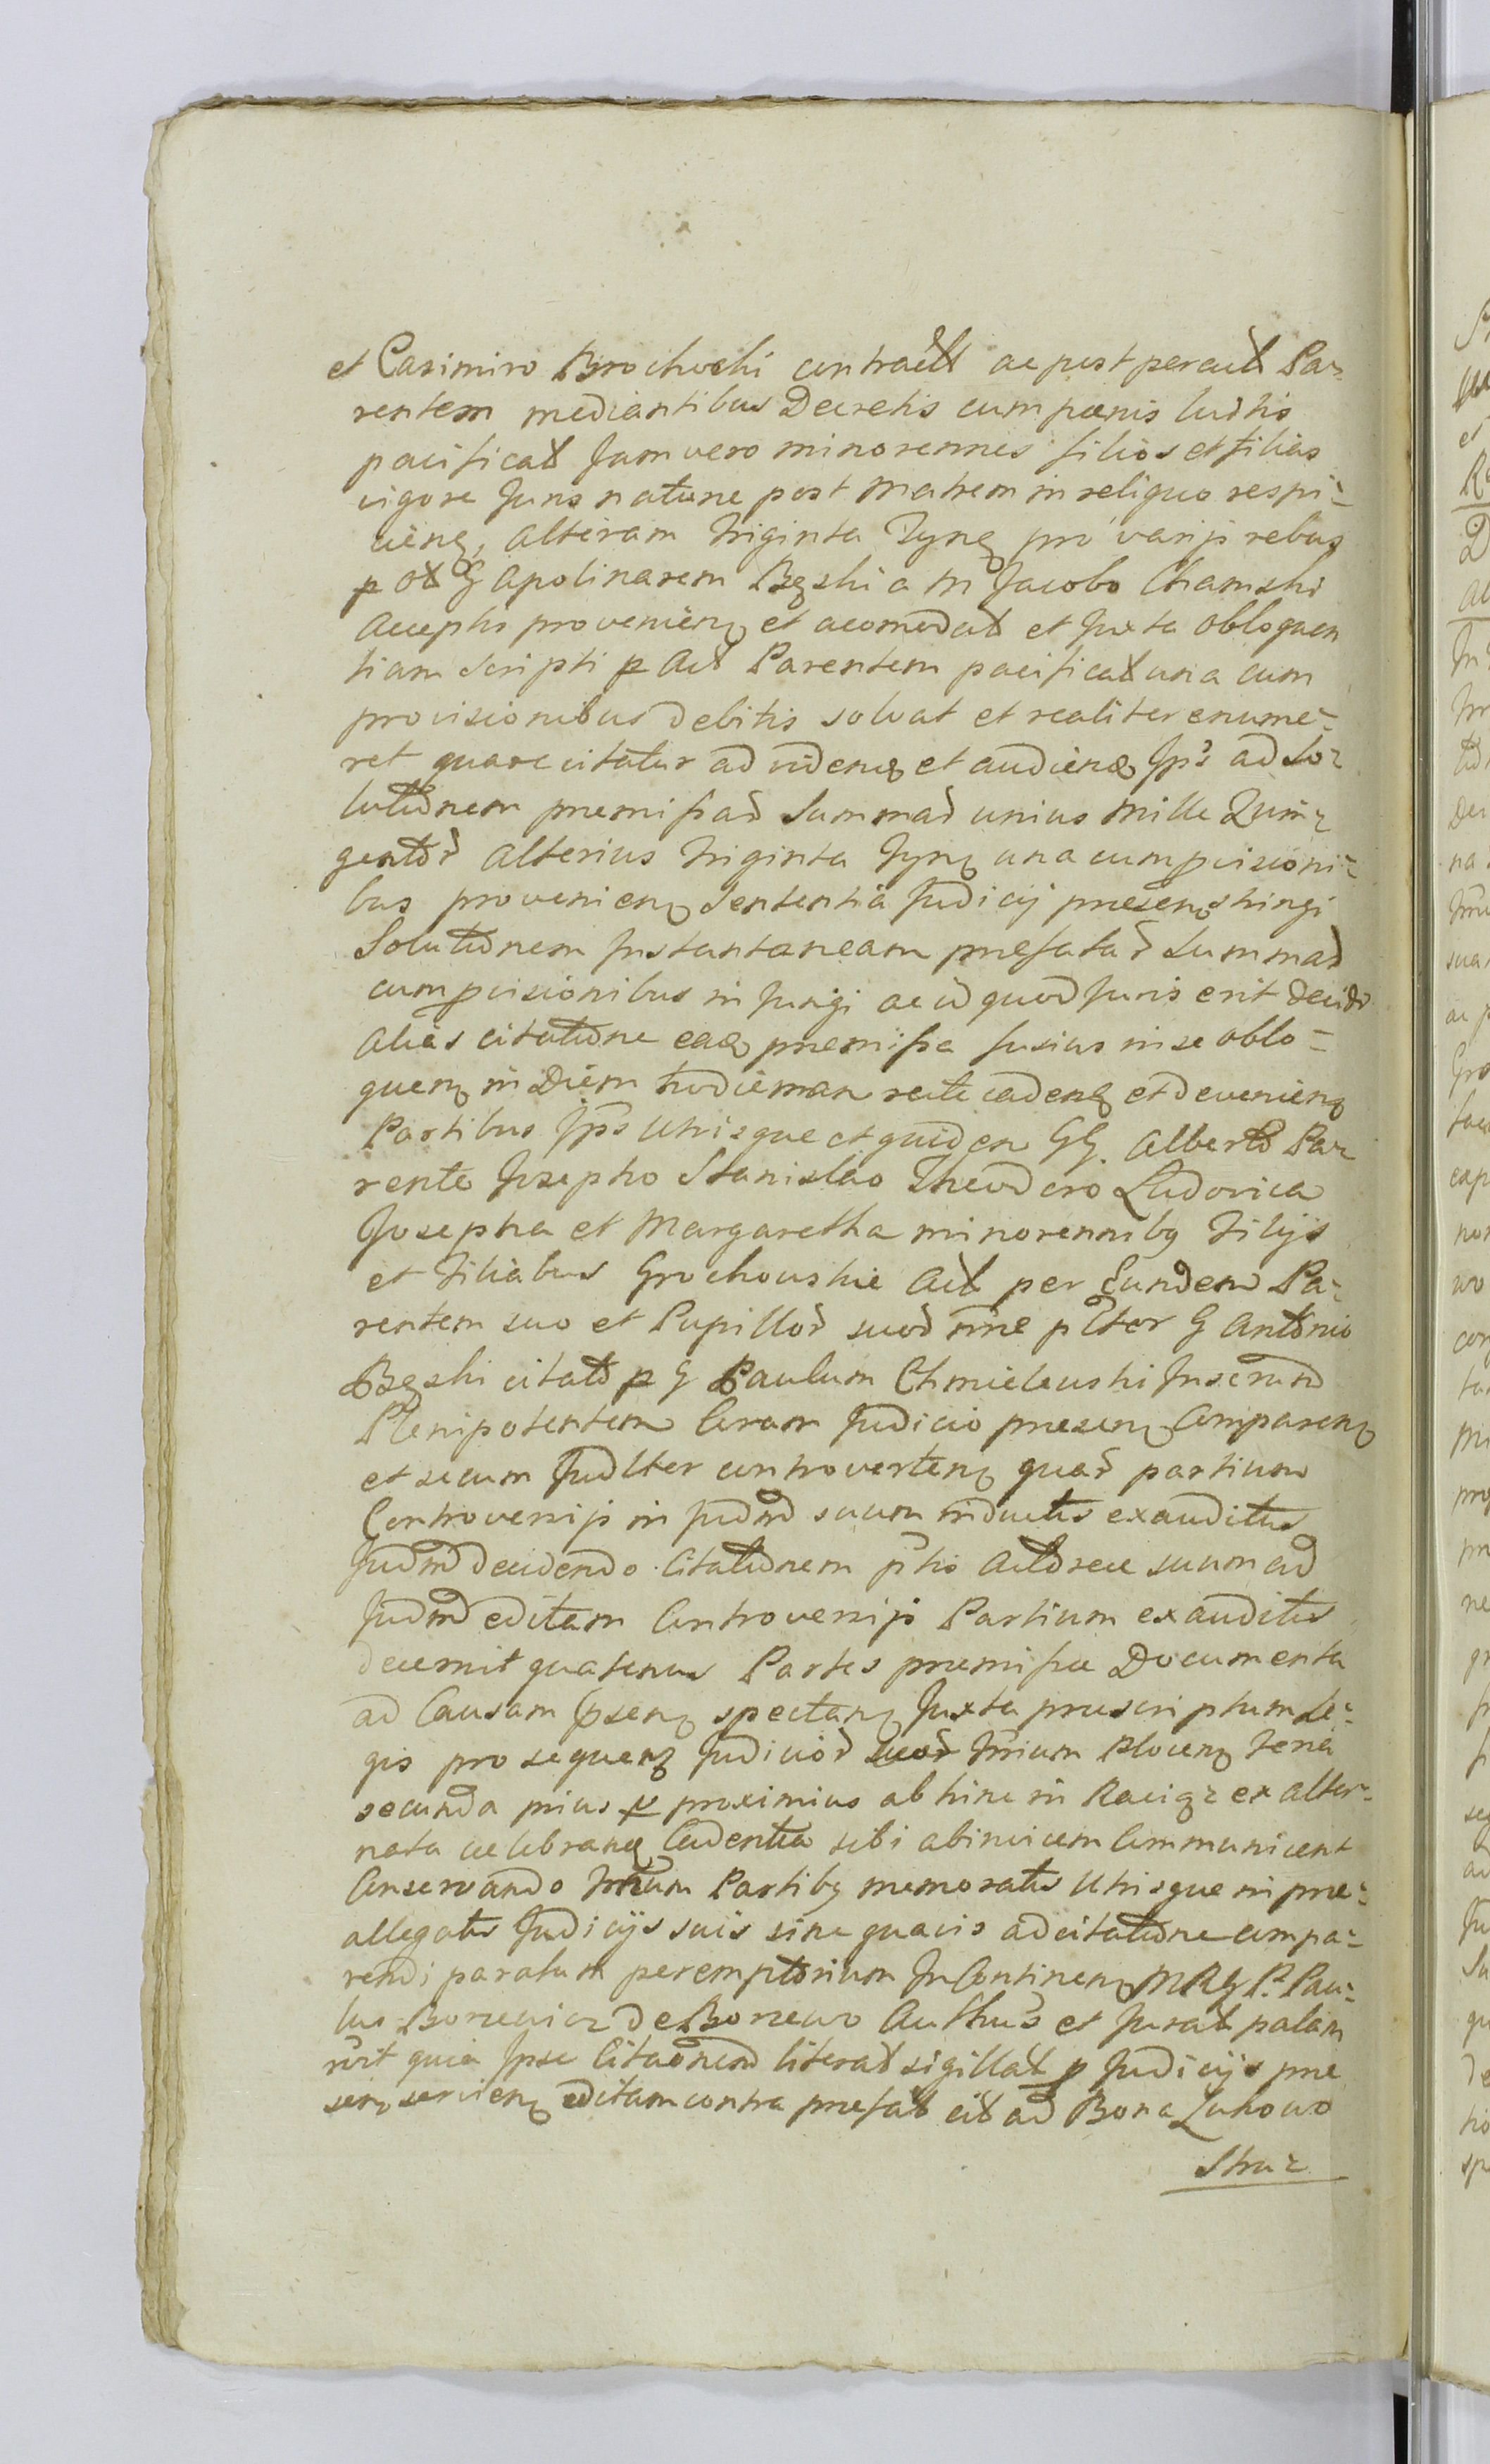 et Casimiro Brochocki contract ac post peract Pa-
rentem mediantibus Decretis cum pœnis luitis
pacificat Jam vero minorennes filios et filias
vigore Juris naturæ post Matrem in reliquo respi-
cienq, alteram triginta Tynq pro varijs rebus
p ol G Apolinarem Bęski a M Jacobo Chamski
acceptis provenienq et acomodat et Juxta obloquen
tiam scripti p Act Parentem pacificat una cum
provisionibus debitis solvat et realiter enume-
ret quare citatur ad videnq et audienq Jps ad so-
lutionem premissar Summar unius Mille Quin-
gentor alterius triginta Tynq una cum pvisioni-
bus provenienq Sententia Judicij presenq stringi
Solutionem Instantaneam prefatar Summar
cum pvisionibus injungi ac id quod Juris erit decidi
alias citatione eaq premissa fusius in se oblo-
quenq in Diem hodiernam recte cadenq et devenienq
Partibus Jps Utrisque et quidem GG. Alberto Pa-
rente Josepho Stanislao Theodoro Ludovica
Josepha et Margaretha minorennibg Filijs
et Filiabus Grochowskie Act per Eundem Pa-
rentem suo et Pupillor suor nne plter G Antonio
Bęski citato p G Paulum Chmielewski Inserund
Plenipotentem Coram Judicio presenq Comparenq
et secum Judlter controvertenq quar partium
Controversijs in Judnd suum inductis exauditis
Judnd decidendo Citationem p tio Actoreæ suum ad
Judnd editam Controversijs Partium exauditis
decernit quatenus Partes premissæ Documenta
ad Causam psenq spectanq Juxta præscriptum Le-
gis prosequenq Judicior suor Trrium Plocenq Feria
secunda prius proximius ab hinc in Raciąz ex alter-
nata celebranq Cadentia sibi abinvicem Communicent
Conservando Trrium Partibg memoratis Utrisque in pre-
allegatis Judicijs suis sine quavis adcitatione compa-
rendi paratum peremptorium In Continenq MRG P. Pau-
lus Borzewicz de Borzewo Authus et Jurat palam
rcvit quia Ipse Citaonem literat sigillat p Judicijs pre
senq servienq editam contra prefat cit ad Bona Lukowo
Stru-